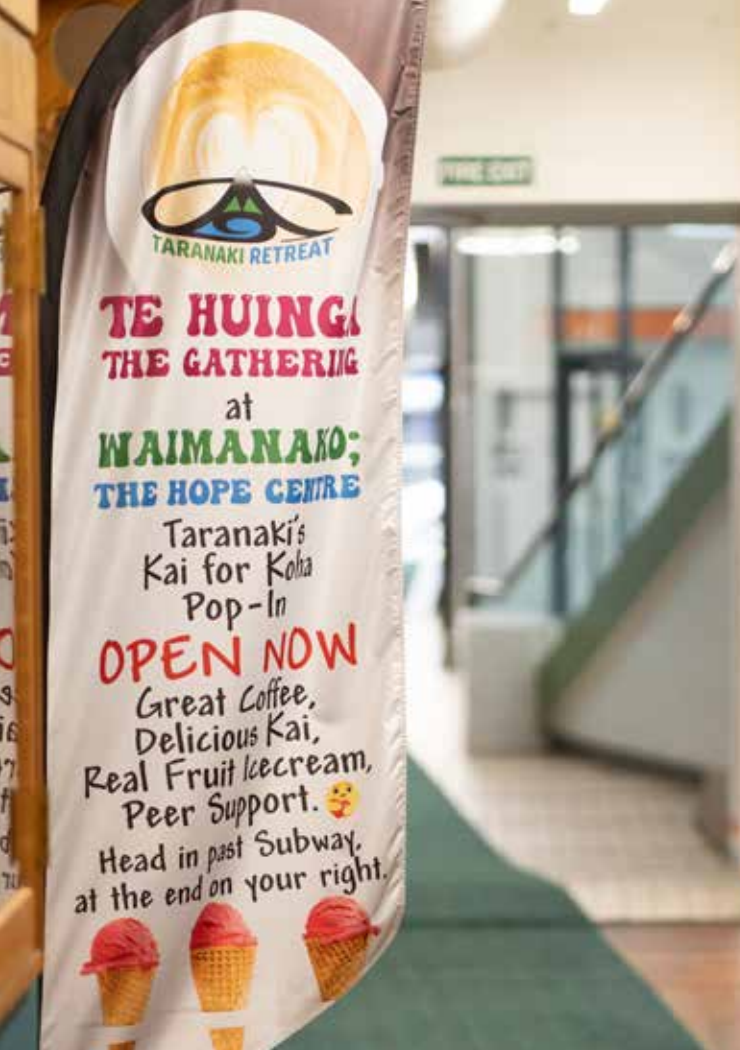 TARANAKI RETREAT
TE HUINGA
THE GATHERING
at
WAIMANAKO;
THE HOPE CENTRE
Taranaki's
Kai for Koha
Pop-In
OPEN NOW
Great Coffee,
Delicious Kai,
Real Fruit Icecream,
Peer Support.
Head in past Subway,
at the end on your right.
FIRE EXIT